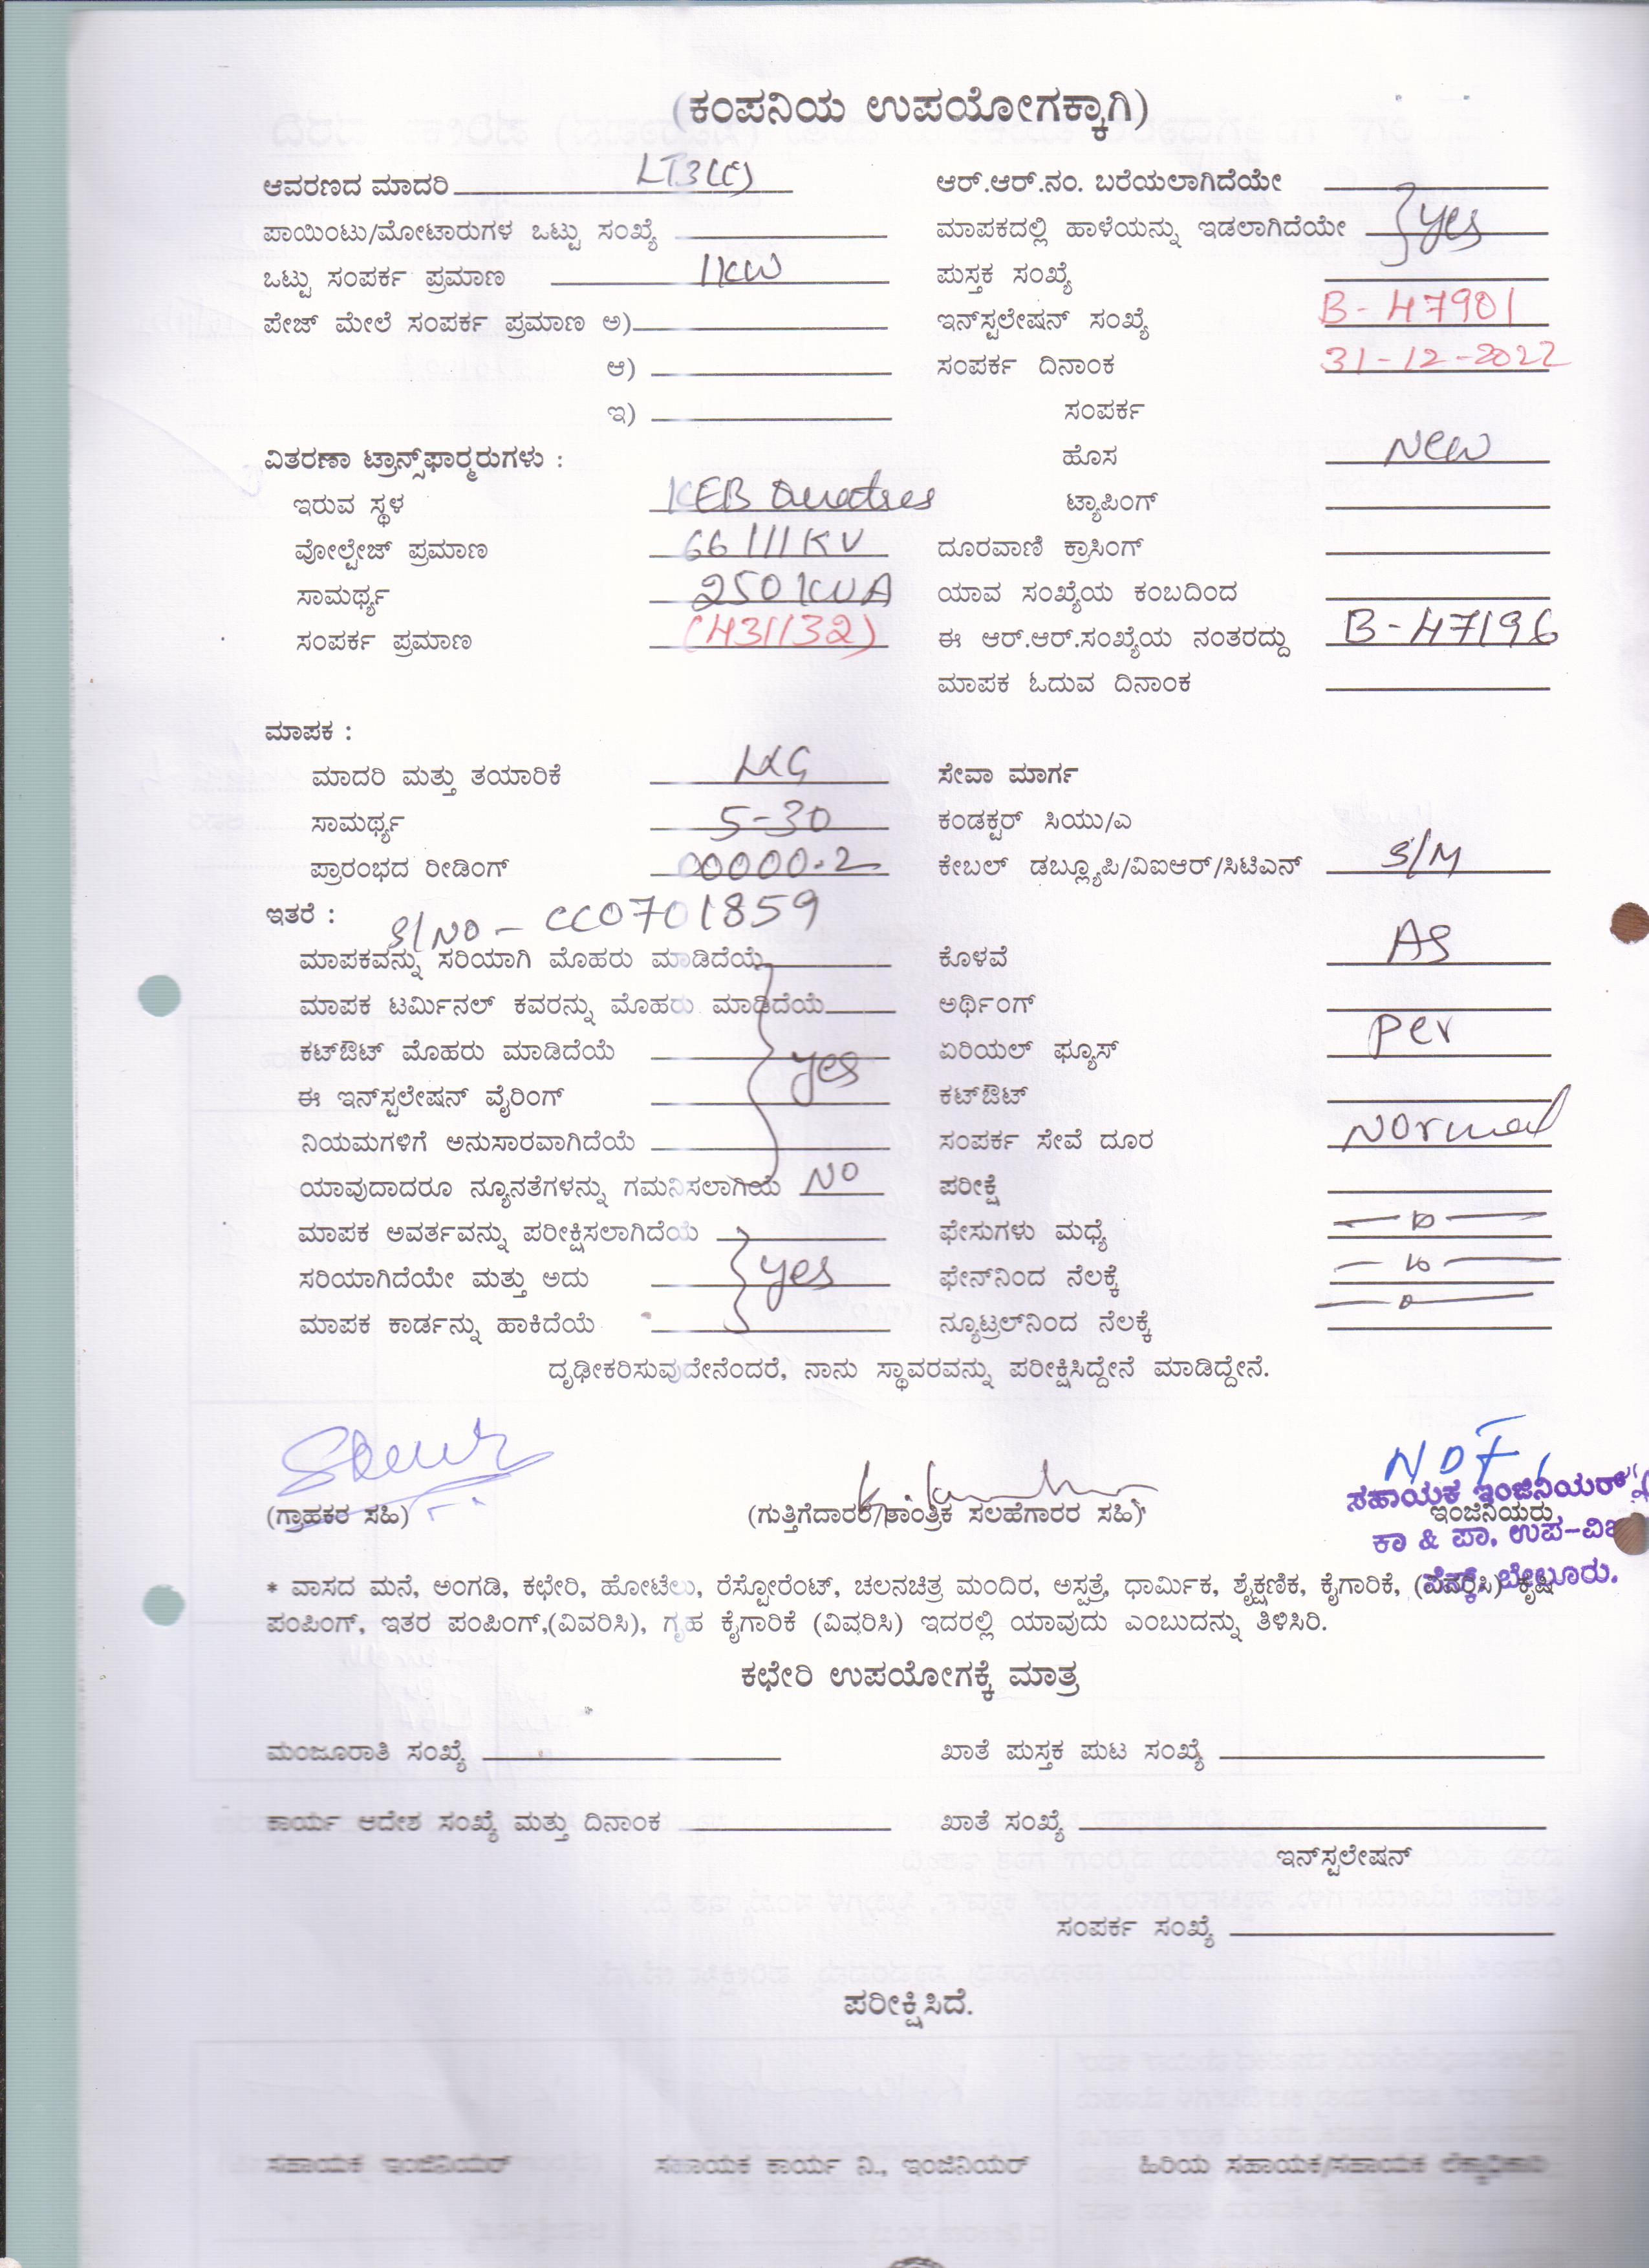 (ಕಂಪನಿಯ ಉಪಯೋಗಕ್ಕಾಗಿ)
ಆವರಣದ ಮಾದರಿ LT3(C) ಆರ್.ಆರ್.ನಂ. ಬರೆಯಲಾಗಿದೆಯೇ
ಪಾಯಿಂಟು/ಮೋಟಾರುಗಳ ಒಟ್ಟು ಸಂಖ್ಯೆ ಮಾಪಕದಲ್ಲಿ ಹಾಳೆಯನ್ನು ಇಡಲಾಗಿದೆಯೇ yes
ಒಟ್ಟು ಸಂಪರ್ಕ ಪ್ರಮಾಣ 1KW ಪುಸ್ತಕ ಸಂಖ್ಯೆ
ಪೇಜ್ ಮೇಲೆ ಸಂಪರ್ಕ ಪ್ರಮಾಣ ಅ) ಇನ್‌ಸ್ಟಲೇಷನ್ ಸಂಖ್ಯೆ B-47901
ಆ) ಸಂಪರ್ಕ ದಿನಾಂಕ 31-12-2022
ಇ) ಸಂಪರ್ಕ
ವಿತರಣಾ ಟ್ರಾನ್ಸ್‌ಫಾರ್ಮರುಗಳು : ಹೊಸ New
ಇರುವ ಸ್ಥಳ KEB ಟ್ಯಾಪಿಂಗ್
ವೋಲ್ಟೇಜ್ ಪ್ರಮಾಣ 66/11KV ದೂರವಾಣಿ ಕ್ರಾಸಿಂಗ್
ಸಾಮರ್ಥ್ಯ 250KVA ಯಾವ ಸಂಖ್ಯೆಯ ಕಂಬದಿಂದ
ಸಂಪರ್ಕ ಪ್ರಮಾಣ (431132) ಈ ಆರ್.ಆರ್.ಸಂಖ್ಯೆಯ ನಂತರದ್ದು B-47196
ಮಾಪಕ ಓದುವ ದಿನಾಂಕ
ಮಾಪಕ :
ಮಾದರಿ ಮತ್ತು ತಯಾರಿಕೆ L&G ಸೇವಾ ಮಾರ್ಗ
ಸಾಮರ್ಥ್ಯ 5-30 ಕಂಡಕ್ಟರ್ ಸಿಯು/ಎ
ಪ್ರಾರಂಭದ ರೀಡಿಂಗ್ 00000.2 ಕೇಬಲ್ ಡಬ್ಲ್ಯೂಪಿ/ವಿಐಆರ್/ಸಿಟಿಎನ್ S/M
ಇತರೆ : Sl NO - CC0701859
ಮಾಪಕವನ್ನು ಸರಿಯಾಗಿ ಮೊಹರು ಮಾಡಿದೆಯೆ ಕೊಳವೆ As
ಮಾಪಕ ಟರ್ಮಿನಲ್ ಕವರನ್ನು ಮೊಹರು ಮಾಡಿದೆಯೆ ಅರ್ಥಿಂಗ್
ಕಟ್‌ಔಟ್ ಮೊಹರು ಮಾಡಿದೆಯೆ yes ಏರಿಯಲ್ ಫ್ಯೂಸ್ Per
ಈ ಇನ್‌ಸ್ಟಲೇಷನ್ ವೈರಿಂಗ್ ಕಟ್‌ಔಟ್
ನಿಯಮಗಳಿಗೆ ಅನುಸಾರವಾಗಿದೆಯೆ ಸಂಪರ್ಕ ಸೇವೆ ದೂರ Normal
ಯಾವುದಾದರೂ ನ್ಯೂನತೆಗಳನ್ನು ಗಮನಿಸಲಾಗಿಯೆ NO ಪರೀಕ್ಷೆ
ಮಾಪಕ ಅವರ್ತವನ್ನು ಪರೀಕ್ಷಿಸಲಾಗಿದೆಯೆ ಫೇಸುಗಳು ಮಧ್ಯೆ
ಸರಿಯಾಗಿದೆಯೇ ಮತ್ತು ಅದು yes ಫೇನ್‌ನಿಂದ ನೆಲಕ್ಕೆ
ಮಾಪಕ ಕಾರ್ಡನ್ನು ಹಾಕಿದೆಯೆ ನ್ಯೂಟ್ರಲ್‌ನಿಂದ ನೆಲಕ್ಕೆ
ದೃಢೀಕರಿಸುವುದೇನೆಂದರೆ, ನಾನು ಸ್ಥಾವರವನ್ನು ಪರೀಕ್ಷಿಸಿದ್ದೇನೆ ಮಾಡಿದ್ದೇನೆ.
NDF
ಸಹಾಯಕ ಇಂಜಿನಿಯರ್
(ಗ್ರಾಹಕರ ಸಹಿ) (ಗುತ್ತಿಗೆದಾರರ/ತಾಂತ್ರಿಕ ಸಲಹೆಗಾರರ ಸಹಿ) ಇಂಜಿನಿಯರು
ಕಾ & ಪಾ. ಉಪ-ವಿಭ
ಬೇಲೂರು.
* ವಾಸದ ಮನೆ, ಅಂಗಡಿ, ಕಛೇರಿ, ಹೋಟೆಲು, ರೆಸ್ಟೋರೆಂಟ್, ಚಲನಚಿತ್ರ ಮಂದಿರ, ಅಸ್ಪತ್ರೆ, ಧಾರ್ಮಿಕ, ಶೈಕ್ಷಣಿಕ, ಕೈಗಾರಿಕೆ, (ವಿವರಿಸಿ) ಕೃಷಿ
ಪಂಪಿಂಗ್, ಇತರ ಪಂಪಿಂಗ್,(ವಿವರಿಸಿ), ಗೃಹ ಕೈಗಾರಿಕೆ (ವಿವರಿಸಿ) ಇದರಲ್ಲಿ ಯಾವುದು ಎಂಬುದನ್ನು ತಿಳಿಸಿರಿ.
ಕಛೇರಿ ಉಪಯೋಗಕ್ಕೆ ಮಾತ್ರ
ಮಂಜೂರಾತಿ ಸಂಖ್ಯೆ ಖಾತೆ ಪುಸ್ತಕ ಪುಟ ಸಂಖ್ಯೆ
ಕಾರ್ಯ ಆದೇಶ ಸಂಖ್ಯೆ ಮತ್ತು ದಿನಾಂಕ ಖಾತೆ ಸಂಖ್ಯೆ
ಇನ್‌ಸ್ಟಲೇಷನ್
ಸಂಪರ್ಕ ಸಂಖ್ಯೆ
ಪರೀಕ್ಷಿಸಿದೆ.
ಸಹಾಯಕ ಇಂಜಿನಿಯರ್ ಸಹಾಯಕ ಕಾರ್ಯ ನಿ., ಇಂಜಿನಿಯರ್ ಹಿರಿಯ ಸಹಾಯಕ/ಸಹಾಯಕ ಲೆಕ್ಕಾಧಿಕಾರಿ